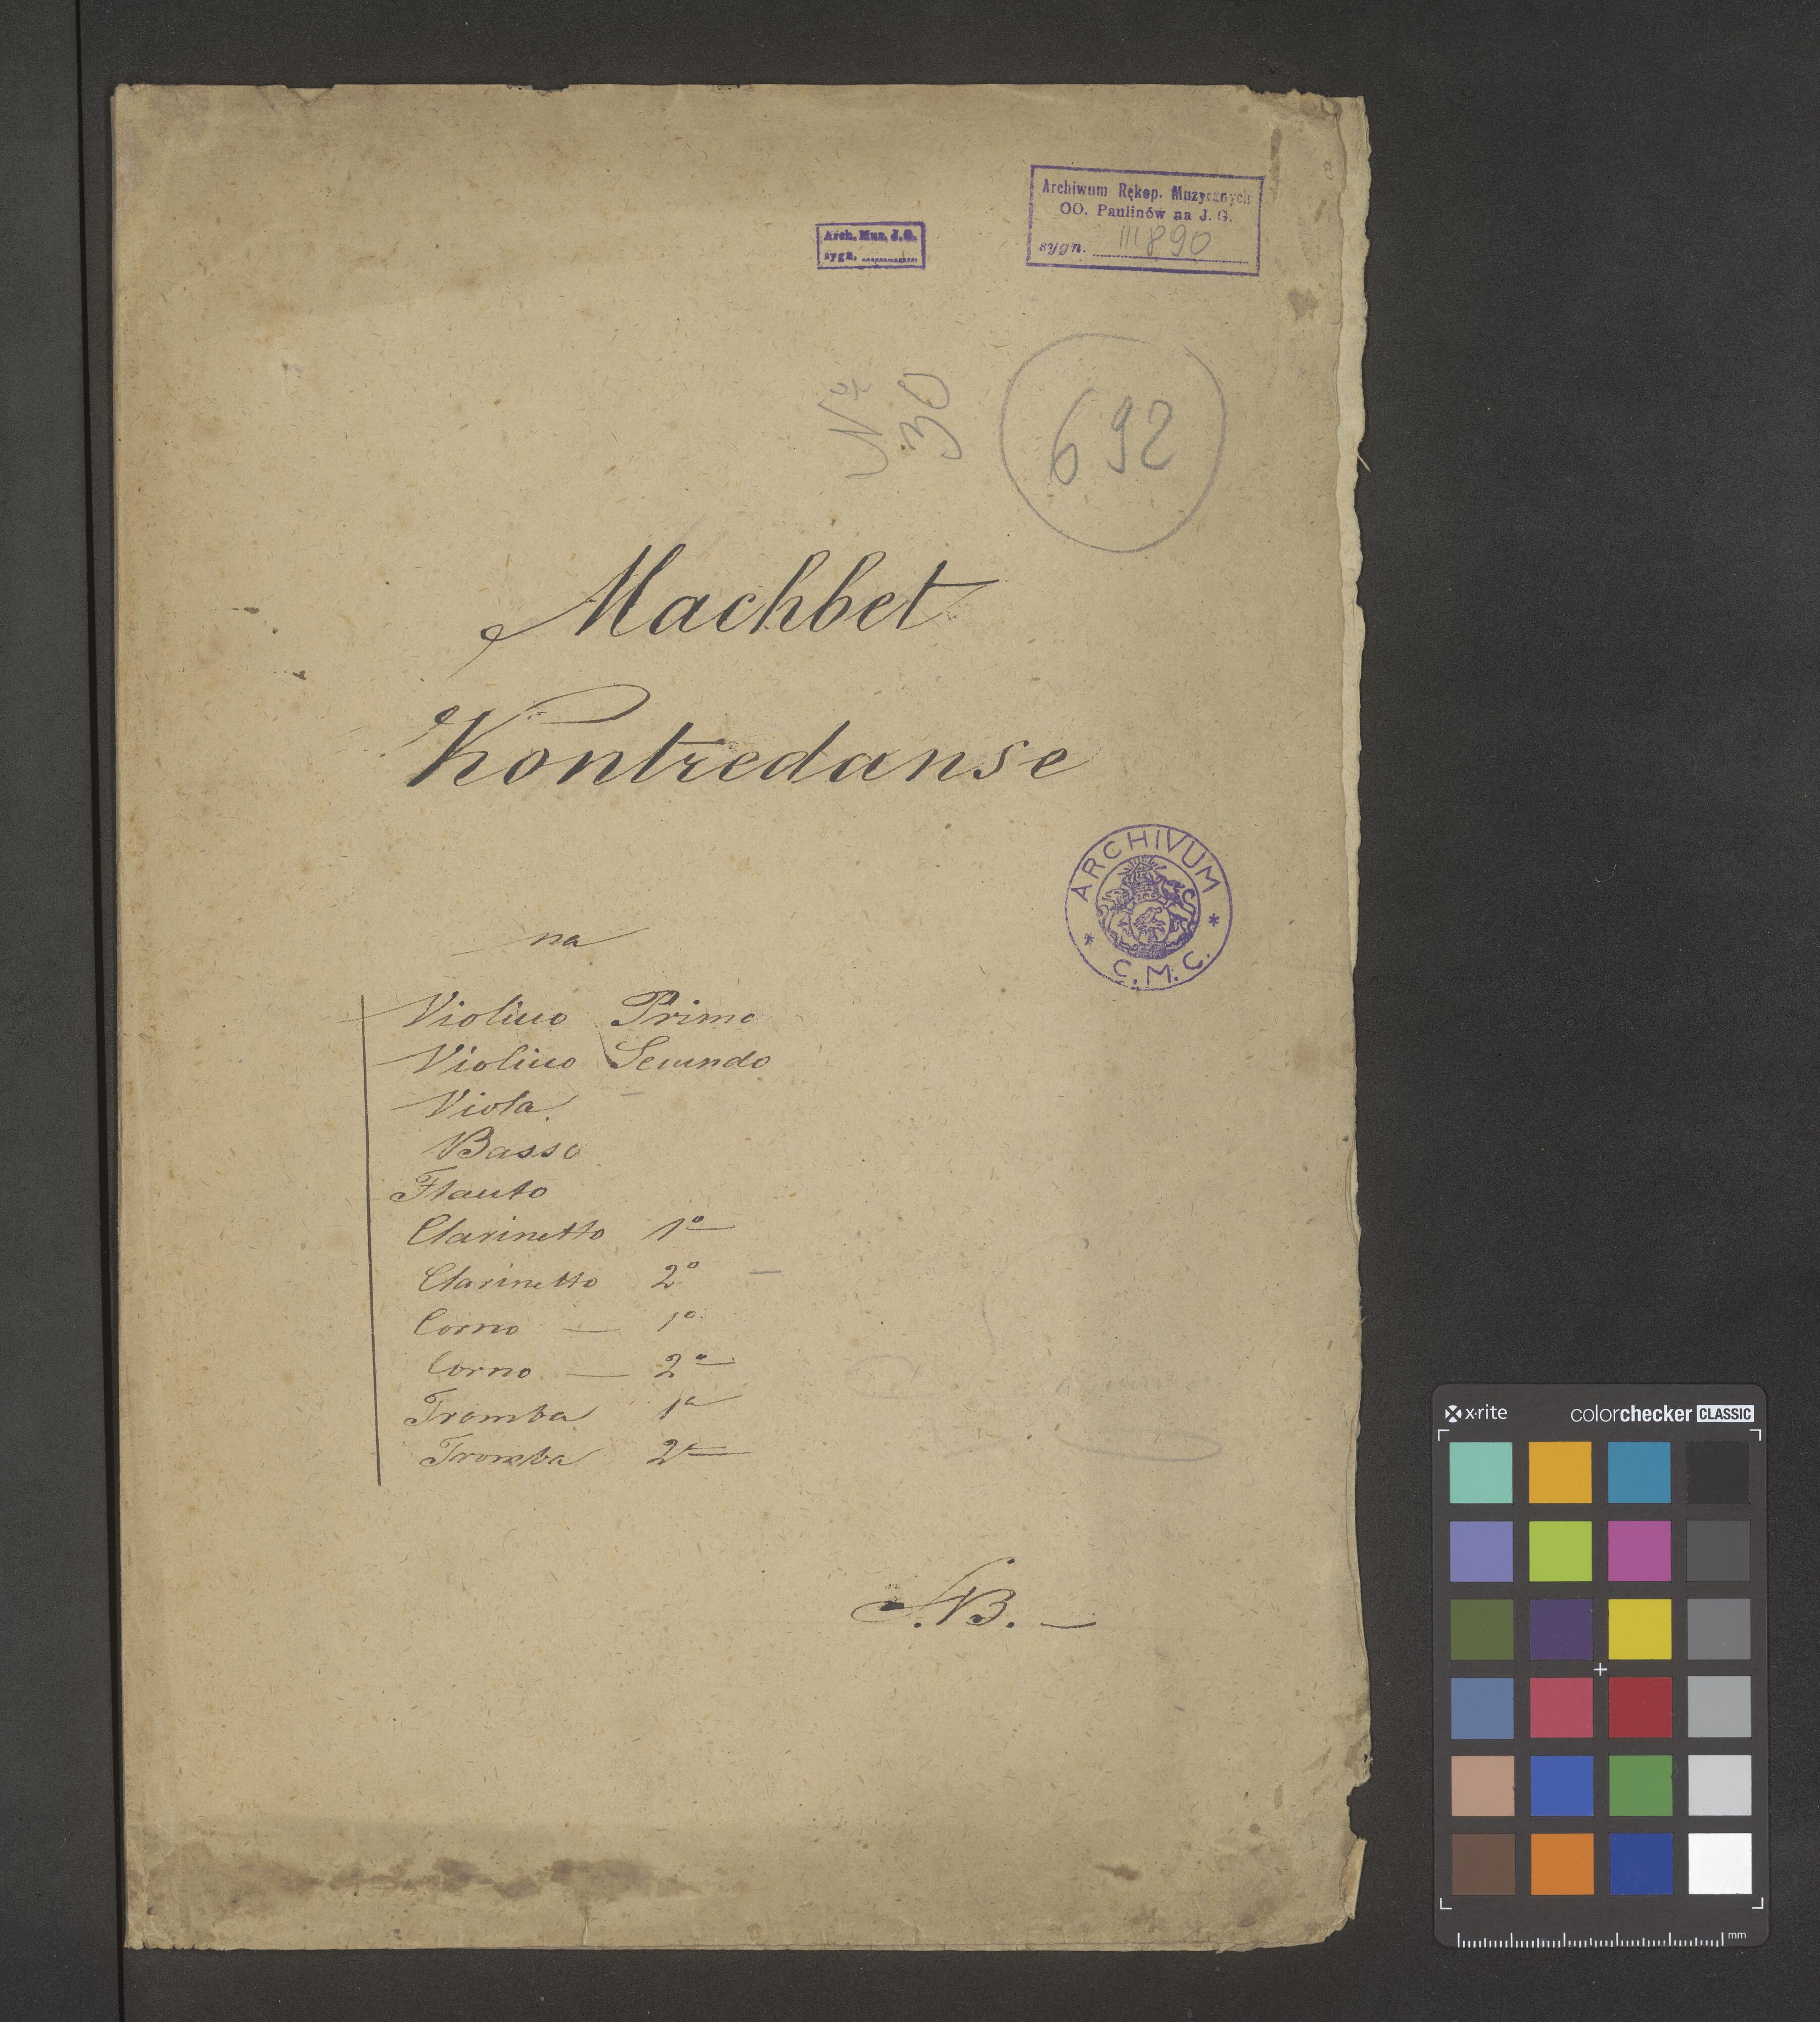 Archiwum Rękop. Muzycznych
OO. Paulinów na J. G.
sygn. III 890
Arch. Muz. J. G.
sygn. ............
№ 30
692
Machbet
Kontredanse
ARCHIVUM
* C.M.C. *
na
Violino Primo
Violino Secundo
Viola
Basso
Flauto
Clarinetto 1º
Clarinetto 2º
Corno — 1º
Corno — 2º
Tromba 1ª
Tromba 2ª
x-rite
colorchecker CLASSIC
mm